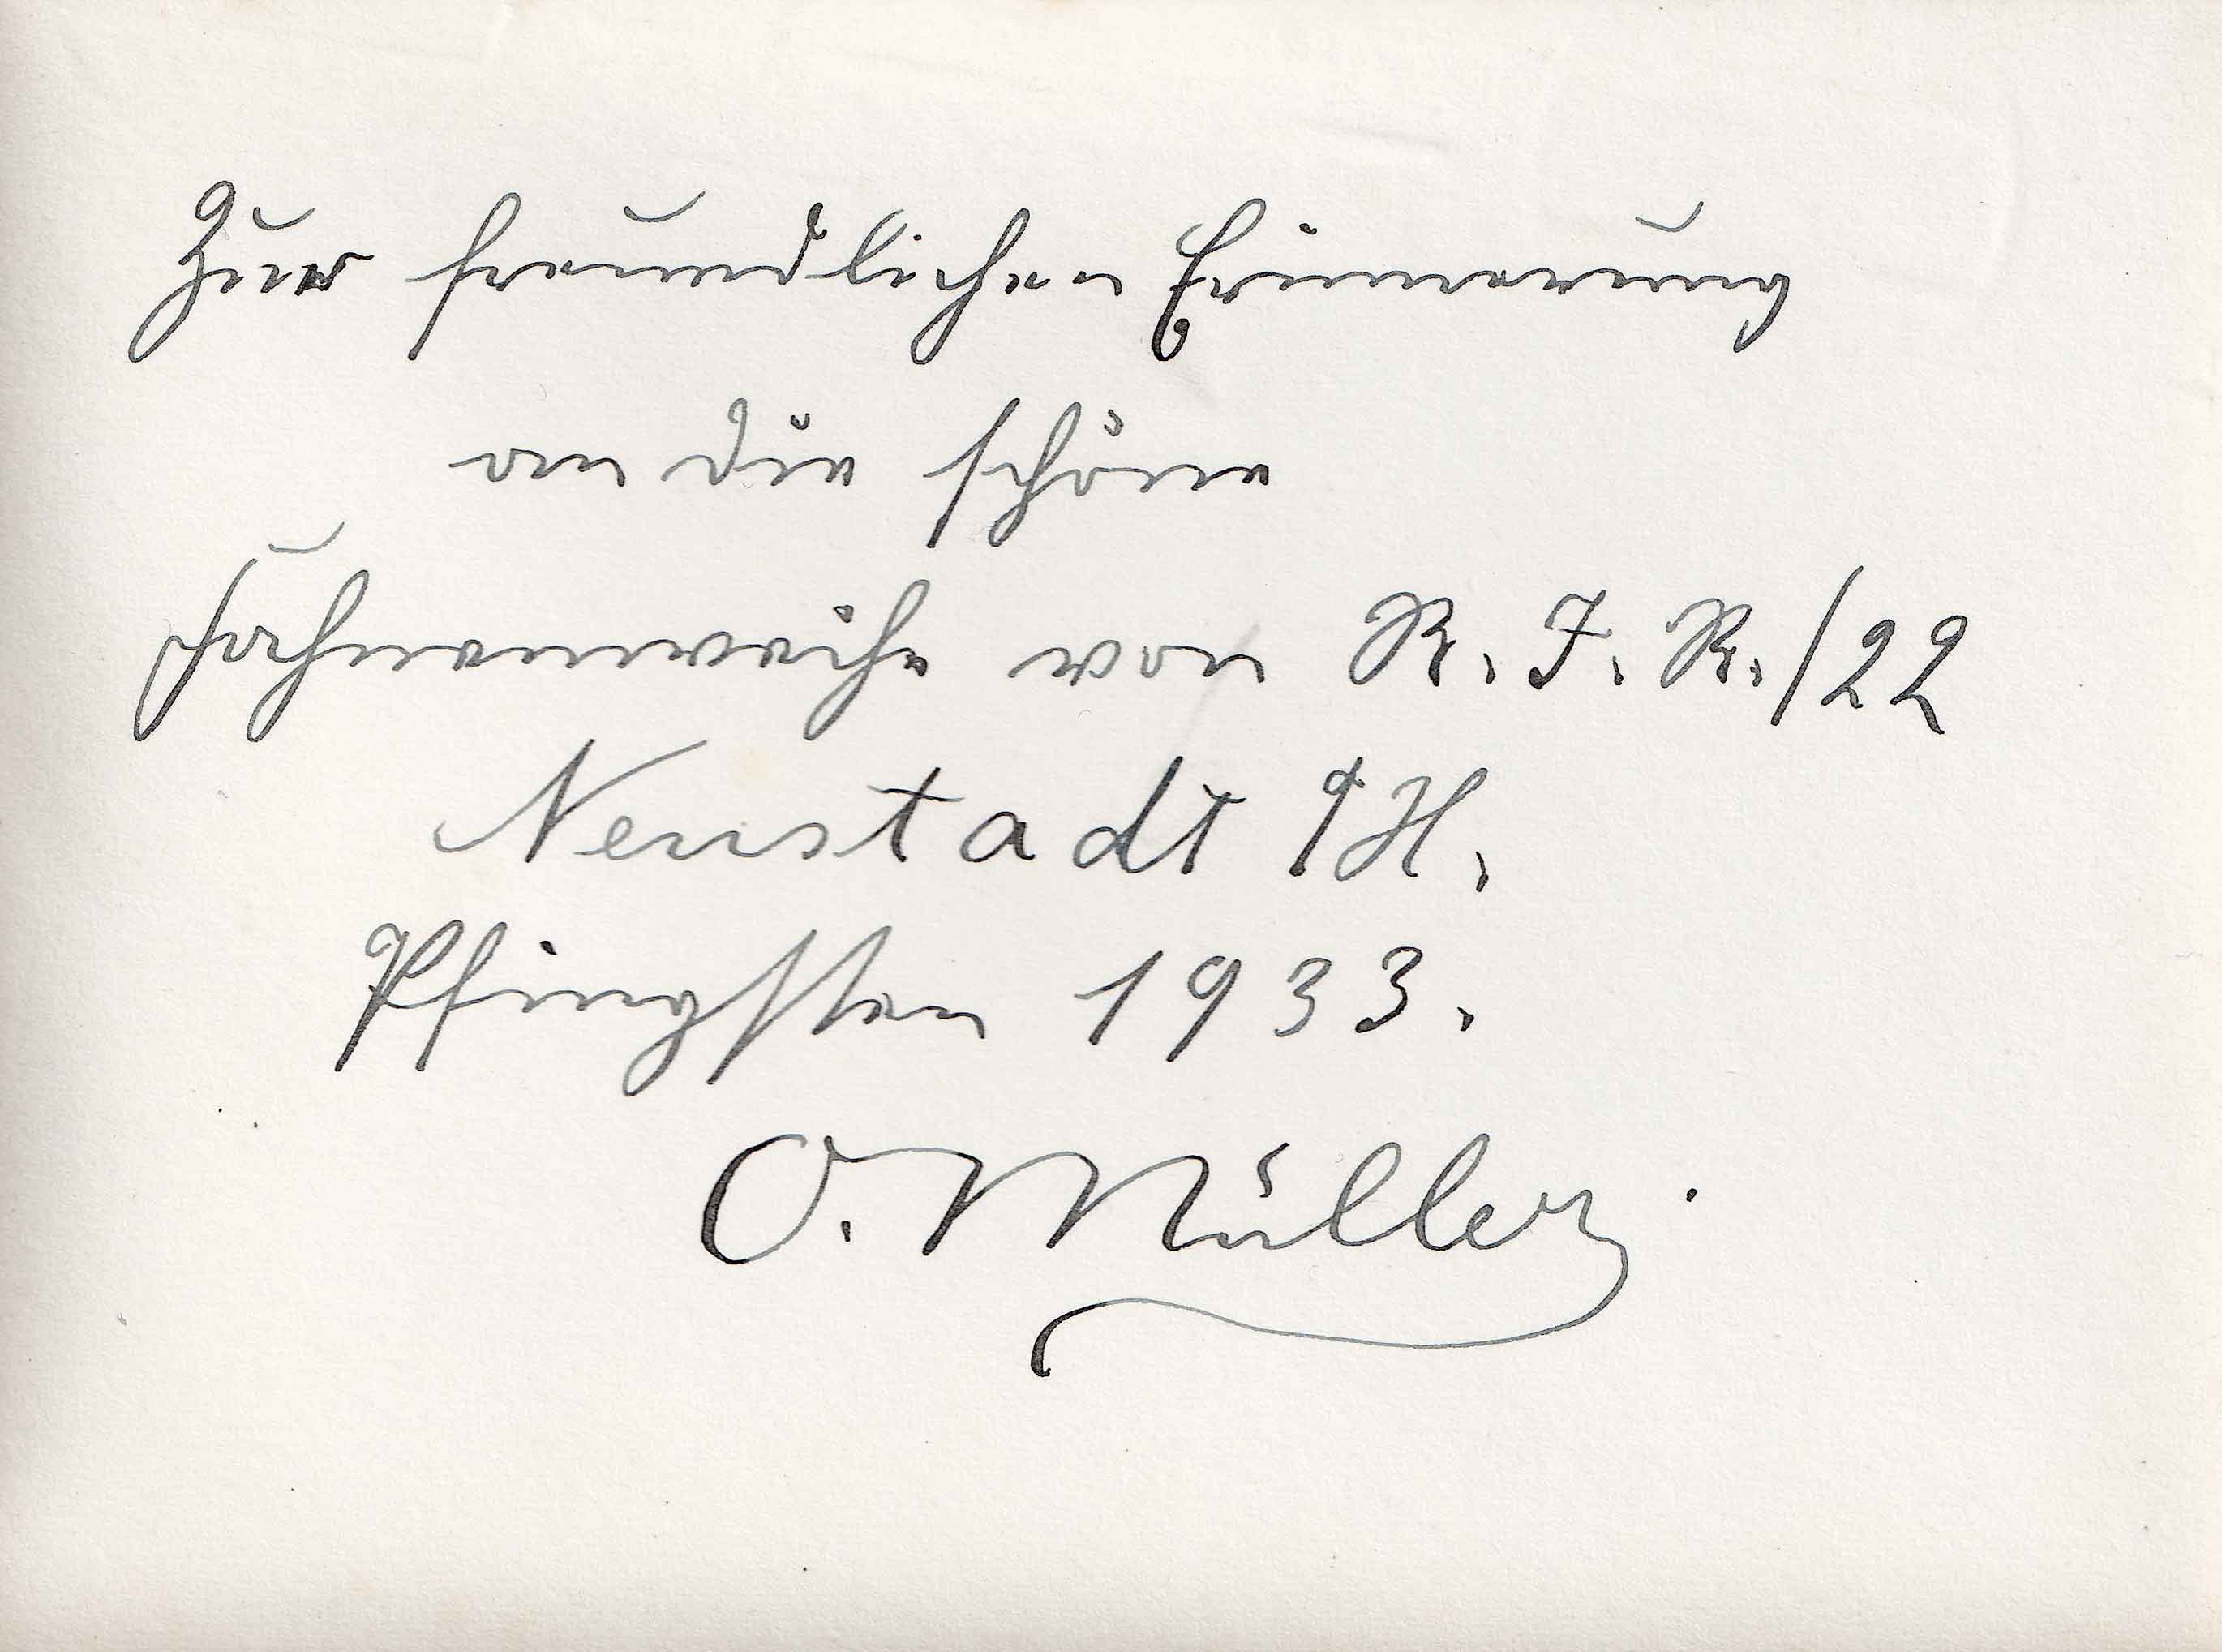 Zur freundlichen Erinnerung
an die schöne
Fahnenweihe von R. I. R./22
Neustadt %H.
Pfingsten 1933.
O. Müller.